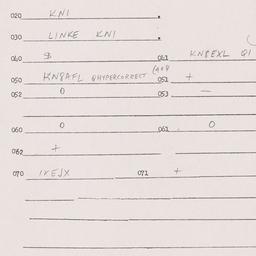 020 KNI
030 LINKE KNI
040 $ 041 KN8EXL QI
050 KN8AFL QHYPERCORRECT 051 +
052 0 053 —
060 0 061 0
062 +
070 1XEJX 071 +